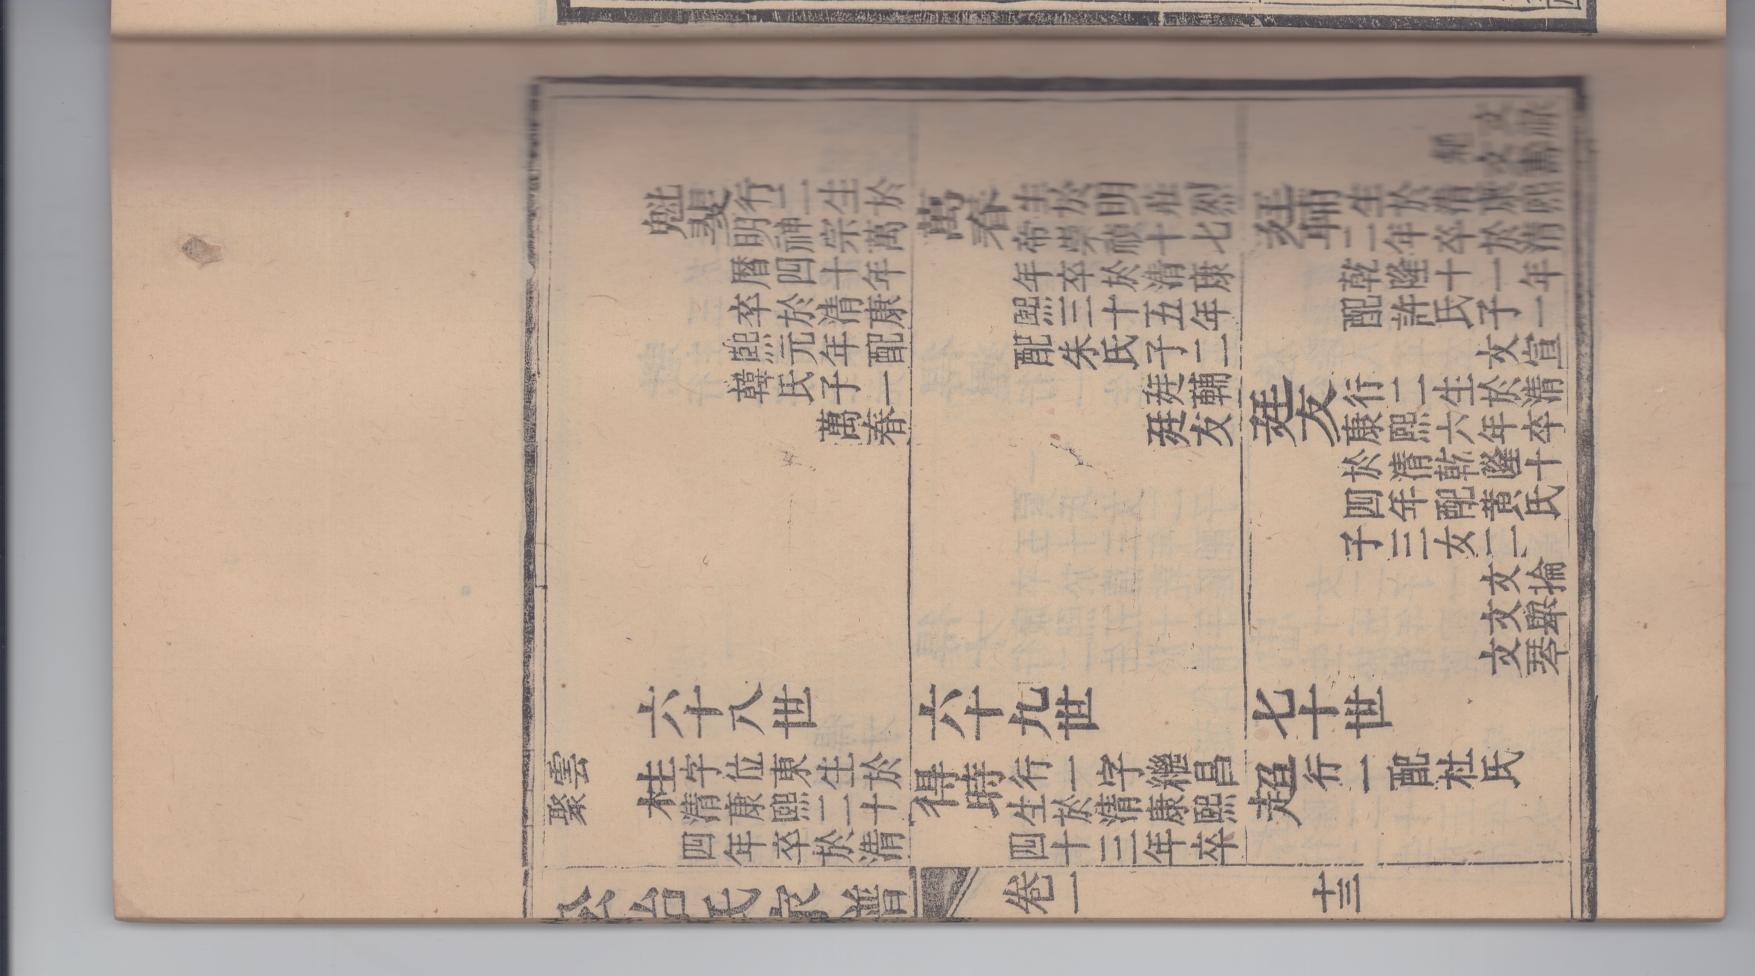 魁斐
行二生於
明神宗萬
曆四十年
卒於清康
熙元年配
韓氏子一
萬春
六十八世
雲聚
桂
字位東生於
清康熙二十
四年卒於清
萬春
生於明莊烈
帝崇禎十七
年卒於清康
熙三十五年
配朱氏子二
廷輔
廷友
六十九世
得時
行一字繼昌
生於清康熙
四十三年卒
廷輔
生於清康熙
二年卒於清
乾隆十一年
配許氏子一
文宣
廷友
行二生於清
康熙六年卒
於清乾隆十
四年配黃氏
子三女二
文掄
文舉
文琴
七十世
超
行一配杜氏
公冶氏家譜
卷一
十三